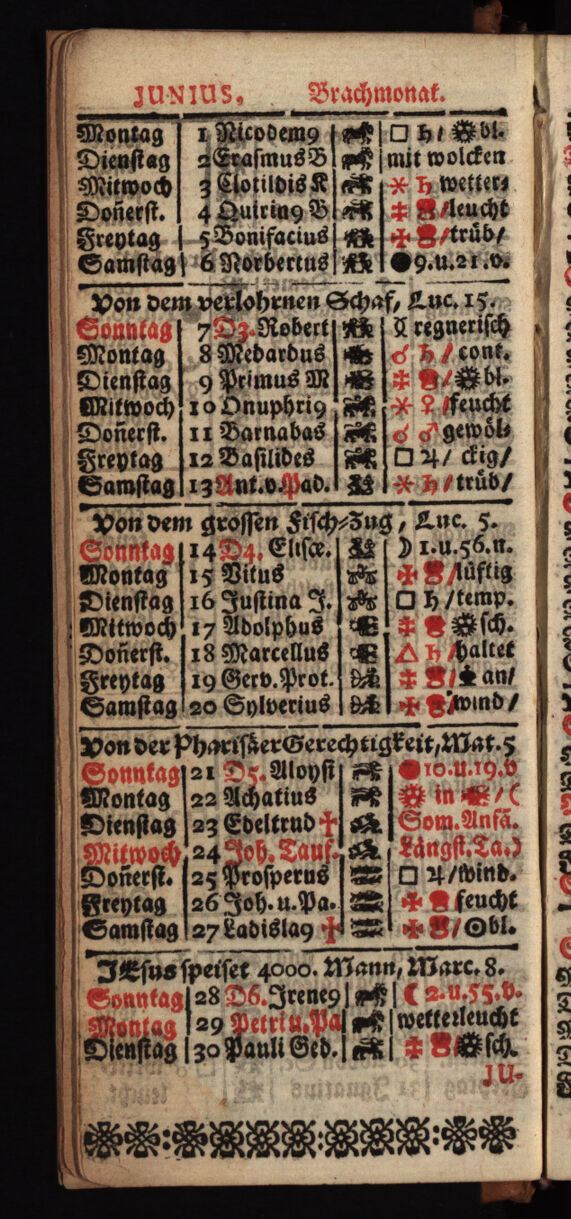 JUNIUS, Brachmonat.
Montag 1 Nicodem9 □ ♄/ bl.
Dienstag 2 Erasmus B mit wolcken
Mitwoch 3 Clotildis K ⚹ ♄ wetter⸗
Don̄erst. 4 Quirin9 B /leucht
Freytag 5 Bonifacius /trüb/
Samstag 6 Norbertus ●9.u.21.v.
Von dem verlohrnen Schaf, Luc. 15.
Sonntag 7 D3. Robert regnerisch
Montag 8 Medardus ☌ ♄ / cont.
Dienstag 9 Primus M / bl.
Mitwoch 10 Onuphri9 ⚹ ♀ /feucht
Don̄erst. 11 Barnabas ☌ ♂ gewöl⸗
Freytag 12 Basilides □ ♃/ ckig/
Samstag 13 Ant.v.Pad. ⚹ ♄/trüb/
Von dem grossen Fisch⸗Zug, Luc. 5.
Sonntag 14 D4. Elisæ. ☽ 1.u.56.n.
Montag 15 Vitus /lüftig
Dienstag 16 Justina J. □ ♄/temp.
Mitwoch 17 Adolphus sch.
Don̄erst. 18 Marcellus △ ♄/haltet
Freytag 19 Gerv.Prot. / an/
Samstag 20 Sylverius /wind/
Von der Pharisäer Gerechtigkeit, Mat.5
Sonntag 21 D5. Aloysi ●10.u.19.v
Montag 22 Achatius in /☾
Dienstag 23 Edeltrud ✝ Som.Anfā.
Mitwoch 24 Joh. Tauf. Längst.Ta.)
Don̄erst. 25 Prosperus □ ♃/wind.
Freytag 26 Joh.u.Pa. feucht
Samstag 27 Ladisla9 ✝ /☉bl.
JEsus speiset 4000. Mann, Marc. 8.
Sonntag 28 D6. Irene9 ☾ 2.u.55.v.
Montag 29 Petri u.Pa wetterleucht
Dienstag 30 Pauli Ged. / sch.
JU-